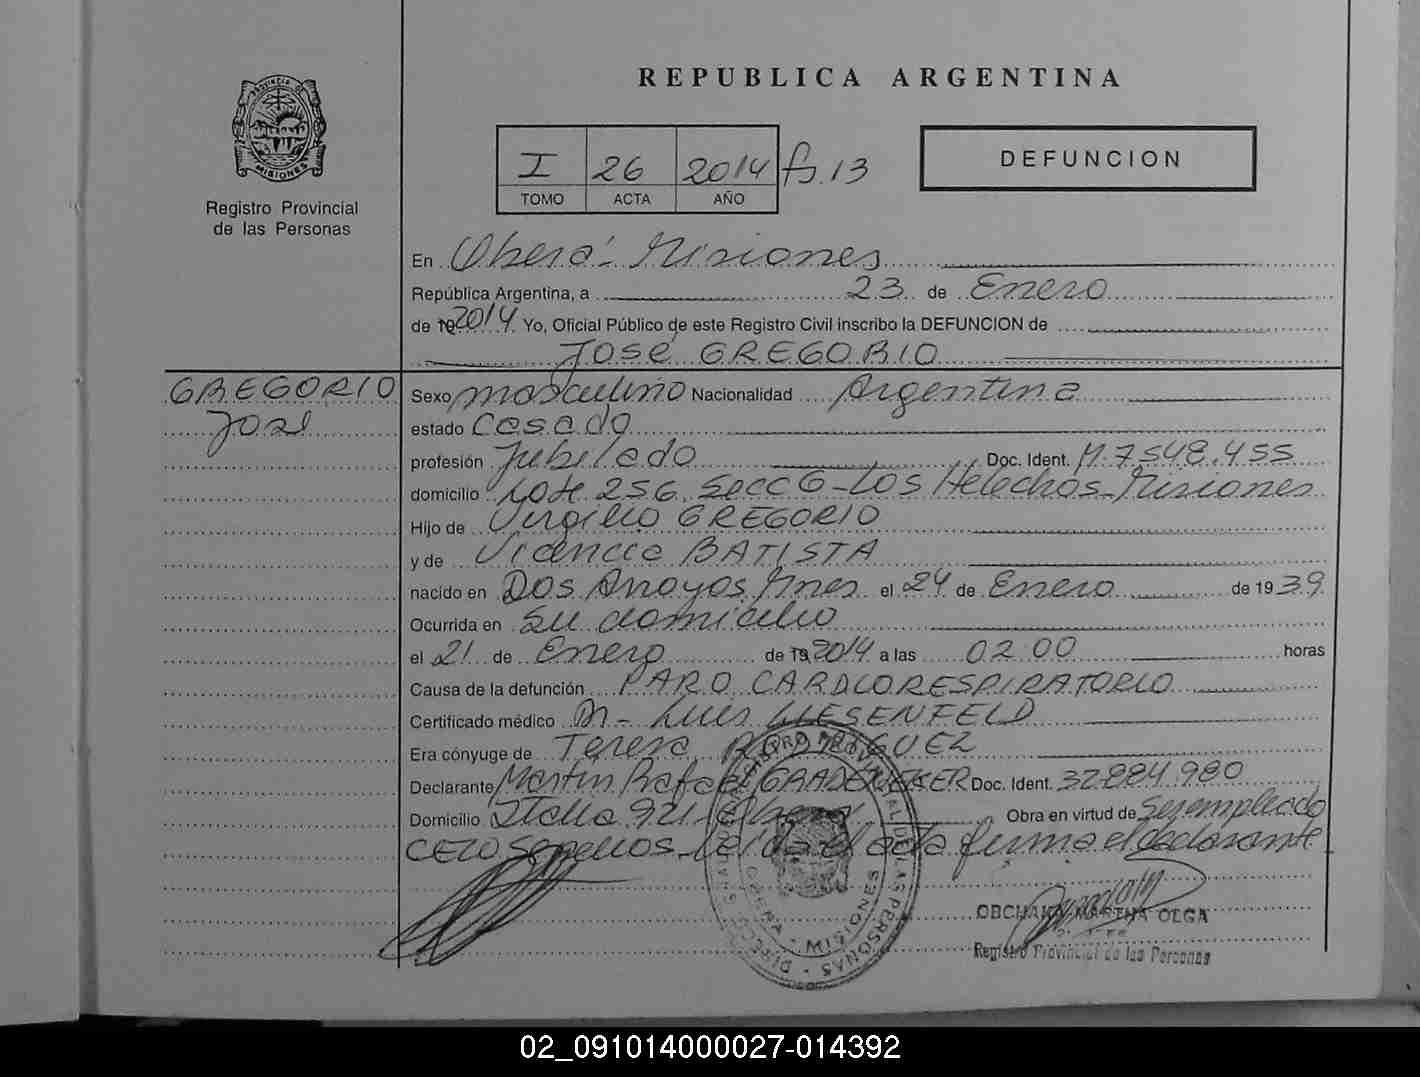 REPUBLICA ARGENTINA
PROVINCIA DE
MISIONES
Registro Provincial
de las Personas
I 26 2014 fs.13
TOMO ACTA AÑO
DEFUNCION
En Oberá - Misiones
República Argentina, a 23 de Enero
de 19 2014 Yo, Oficial Público de este Registro Civil inscribo la DEFUNCION de
José GREGORIO
GREGORIO
José
Sexo masculino Nacionalidad Argentina
estado Casado
profesión Jubilado Doc. Ident. M. 7548.455
domicilio Lote 256 Secc 6 - Los Helechos - Misiones
Hijo de Virgilio GREGORIO
y de Vicencia BATISTA
nacido en Dos Arroyos, Mnes el 24 de Enero de 1939
Ocurrida en su domicilio
el 21 de Enero de 19 2014 a las 02 00 horas
Causa de la defunción PARO CARDIORESPIRATORIO
Certificado médico Dr - Luis WIESENFELD
Era cónyuge de Teresa RODRIGUEZ
Declarante Martín Rafael GRADENEKER Doc. Ident. 32.884.980
Domicilio Italia 921 - Oberá Obra en virtud de Ser empleado
CELO Sepelios - Leída el acta firma el declarante
REGISTRO PROVINCIAL DE LAS PERSONAS
OBERA - MISIONES
OBCHAKA MARTHA OLGA
Registro Provincial de las Personas
02_091014000027-014392